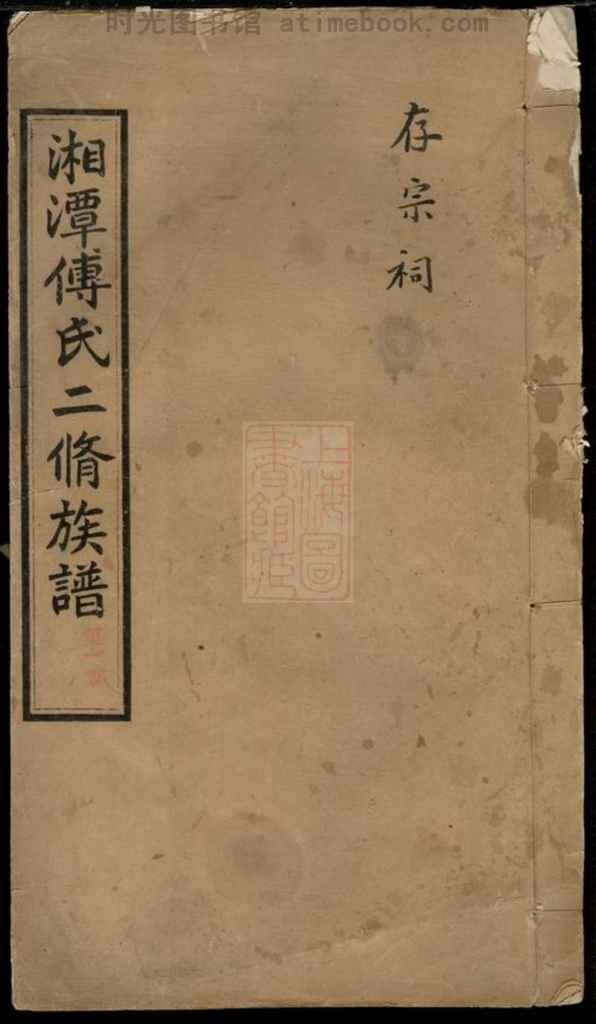 时光图书馆 atimebook.com
存宗祠
上海圖書館藏
湘潭傅氏二脩族譜